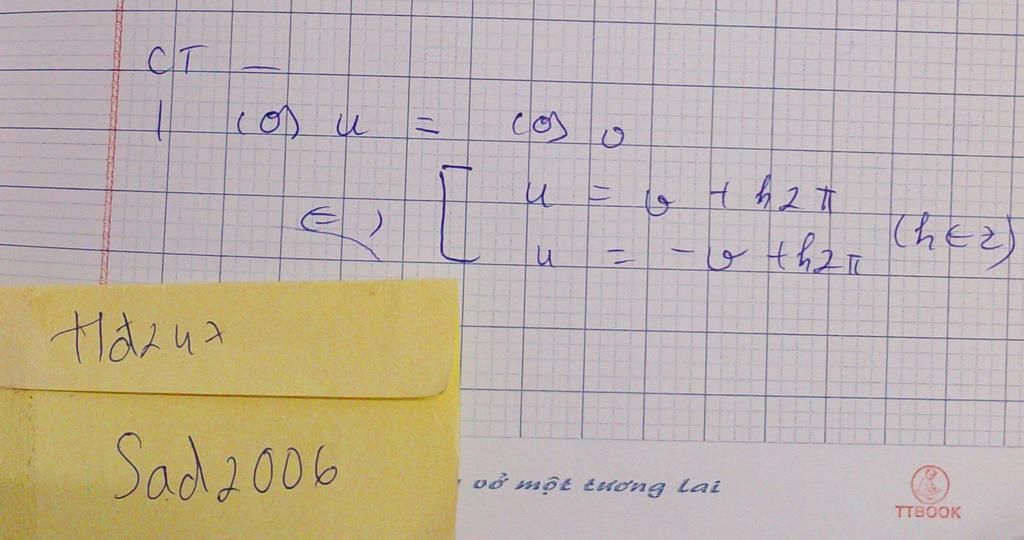 CT –
1 cos u = cos v
⇔ [ u = v + k2π
u = -v + k2π (k ∈ Z)
Hd247
Sad2006
vở một tương lai
TTBOOK